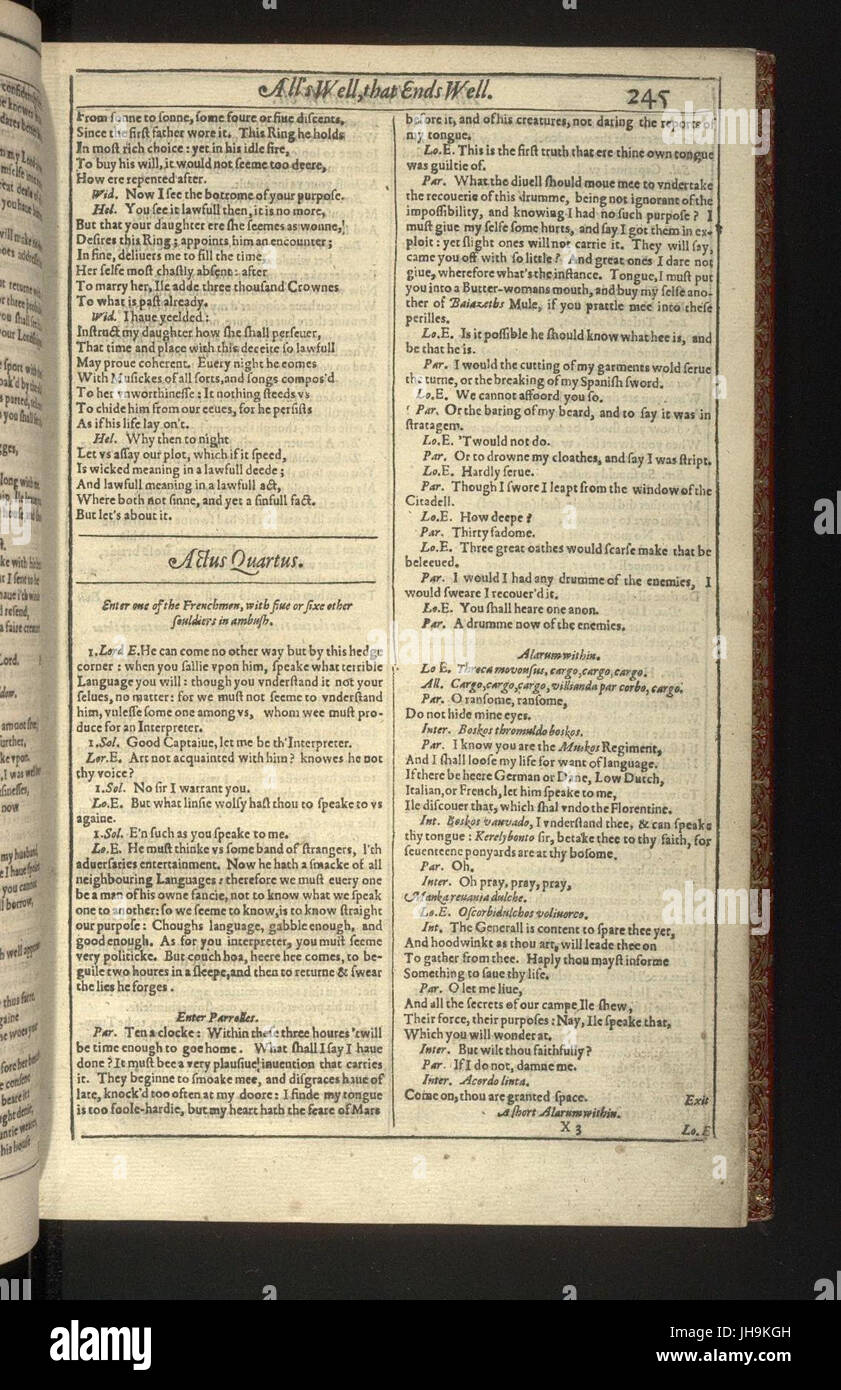 All's Well, that Ends Well.
245
From sonne to sonne, some foure or fiue discents,
Since the first father wore it. This Ring he holds
In most rich choice: yet in his idle fire,
To buy his will, it would not seeme too deere,
How ere repented after.
Wid. Now I see the bottome of your purpose.
Hel. You see it lawfull then, it is no more,
But that your daughter ere she seemes as wonne,
Desires this Ring; appoints him an encounter;
In fine, deliuers me to fill the time,
Her selfe most chastly absent: after
To marry her, Ile adde three thousand Crownes
To what is past already.
Wid. I haue yeelded:
Instruct my daughter how she shall perseuer,
That time and place with this deceite so lawfull
May proue coherent. Euery night he comes
With Musickes of all sorts, and songs compos'd
To her vnworthinesse: It nothing steeds vs
To chide him from our eeues, for he persists
As if his life lay on't.
Hel. Why then to night
Let vs assay our plot, which if it speed,
Is wicked meaning in a lawfull deede;
And lawfull meaning in a lawfull act,
Where both not sinne, and yet a sinfull fact.
But let's about it.
Actus Quartus.
Enter one of the Frenchmen, with fiue or sixe other
souldiers in ambush.
1. Lord E. He can come no other way but by this hedge
corner: when you sallie vpon him, speake what terrible
Language you will: though you vnderstand it not your
selues, no matter: for we must not seeme to vnderstand
him, vnlesse some one among vs, whom wee must pro-
duce for an Interpreter.
1. Sol. Good Captaiue, let me be th'Interpreter.
Lor. E. Art not acquainted with him? knowes he not
thy voice?
1. Sol. No sir I warrant you.
Lo. E. But what linsie wolsy hast thou to speake to vs
againe.
1. Sol. E'n such as you speake to me.
Lo. E. He must thinke vs some band of strangers, i'th
aduersaries entertainment. Now he hath a smacke of all
neighbouring Languages: therefore we must euery one
be a man of his owne fancie, not to know what we speak
one to another: so we seeme to know, is to know straight
our purpose: Choughs language, gabble enough, and
good enough. As for you interpreter, you must seeme
very politicke. But couch hoa, heere hee comes, to be-
guile two houres in a sleepe, and then to returne & swear
the lies he forges.
Enter Parrolles.
Par. Ten a clocke: Within these three houres 'twill
be time enough to goe home. What shall I say I haue
done? It must bee a very plausiue inuention that carries
it. They beginne to smoake mee, and disgraces haue of
late, knock'd too often at my doore: I finde my tongue
is too foole-hardie, but my heart hath the feare of Mars
before it, and of his creatures, not daring the reports of
my tongue.
Lo. E. This is the first truth that ere thine own tongue
was guiltie of.
Par. What the diuell should moue mee to vndertake
the recouerie of this drumme, being not ignorant of the
impossibility, and knowing I had no such purpose? I
must giue my selfe some hurts, and say I got them in ex-
ploit: yet slight ones will not carrie it. They will say,
came you off with so little? And great ones I dare not
giue, wherefore what's the instance. Tongue, I must put
you into a Butter-womans mouth, and buy my selfe ano-
ther of Baiazeths Mule, if you prattle mee into these
perilles.
Lo. E. Is it possible he should know what hee is, and
be that he is.
Par. I would the cutting of my garments wold serue
the turne, or the breaking of my Spanish sword.
Lo. E. We cannot affoord you so.
Par. Or the baring of my beard, and to say it was in
stratagem.
Lo. E. 'Twould not do.
Par. Or to drowne my cloathes, and say I was stript.
Lo. E. Hardly serue.
Par. Though I swore I leapt from the window of the
Citadell.
Lo. E. How deepe?
Par. Thirty fadome.
Lo. E. Three great oathes would scarse make that be
beleeued.
Par. I would I had any drumme of the enemies, I
would sweare I recouer'd it.
Lo. E. You shall heare one anon.
Par. A drumme now of the enemies.
Alarum within.
Lo E. Throca movousus, cargo, cargo, cargo.
All. Cargo, cargo, cargo, villianda par corbo, cargo.
Par. O ransome, ransome,
Do not hide mine eyes.
Inter. Boskos thromuldo boskos.
Par. I know you are the Muskos Regiment,
And I shall loose my life for want of language.
If there be heere German or Dane, Low Dutch,
Italian, or French, let him speake to me,
Ile discouer that, which shal vndo the Florentine.
Int. Boskos vauvado, I vnderstand thee, & can speake
thy tongue: Kerelybonto sir, betake thee to thy faith, for
seuenteene ponyards are at thy bosome.
Par. Oh.
Inter. Oh pray, pray, pray,
Manka reuania dulche.
Lo. E. Oscorbidulchos voliuorco.
Int. The Generall is content to spare thee yet,
And hoodwinkt as thou art, will leade thee on
To gather from thee. Haply thou mayst informe
Something to saue thy life.
Par. O let me liue,
And all the secrets of our campe Ile shew,
Their force, their purposes: Nay, Ile speake that,
Which you will wonder at.
Inter. But wilt thou faithfully?
Par. If I do not, damne me.
Inter. Acordo linta.
Come on, thou are granted space. Exit
A short Alarum within.
X 3
Lo. E
alamy stock photo
JH9KGH
www.alamy.com